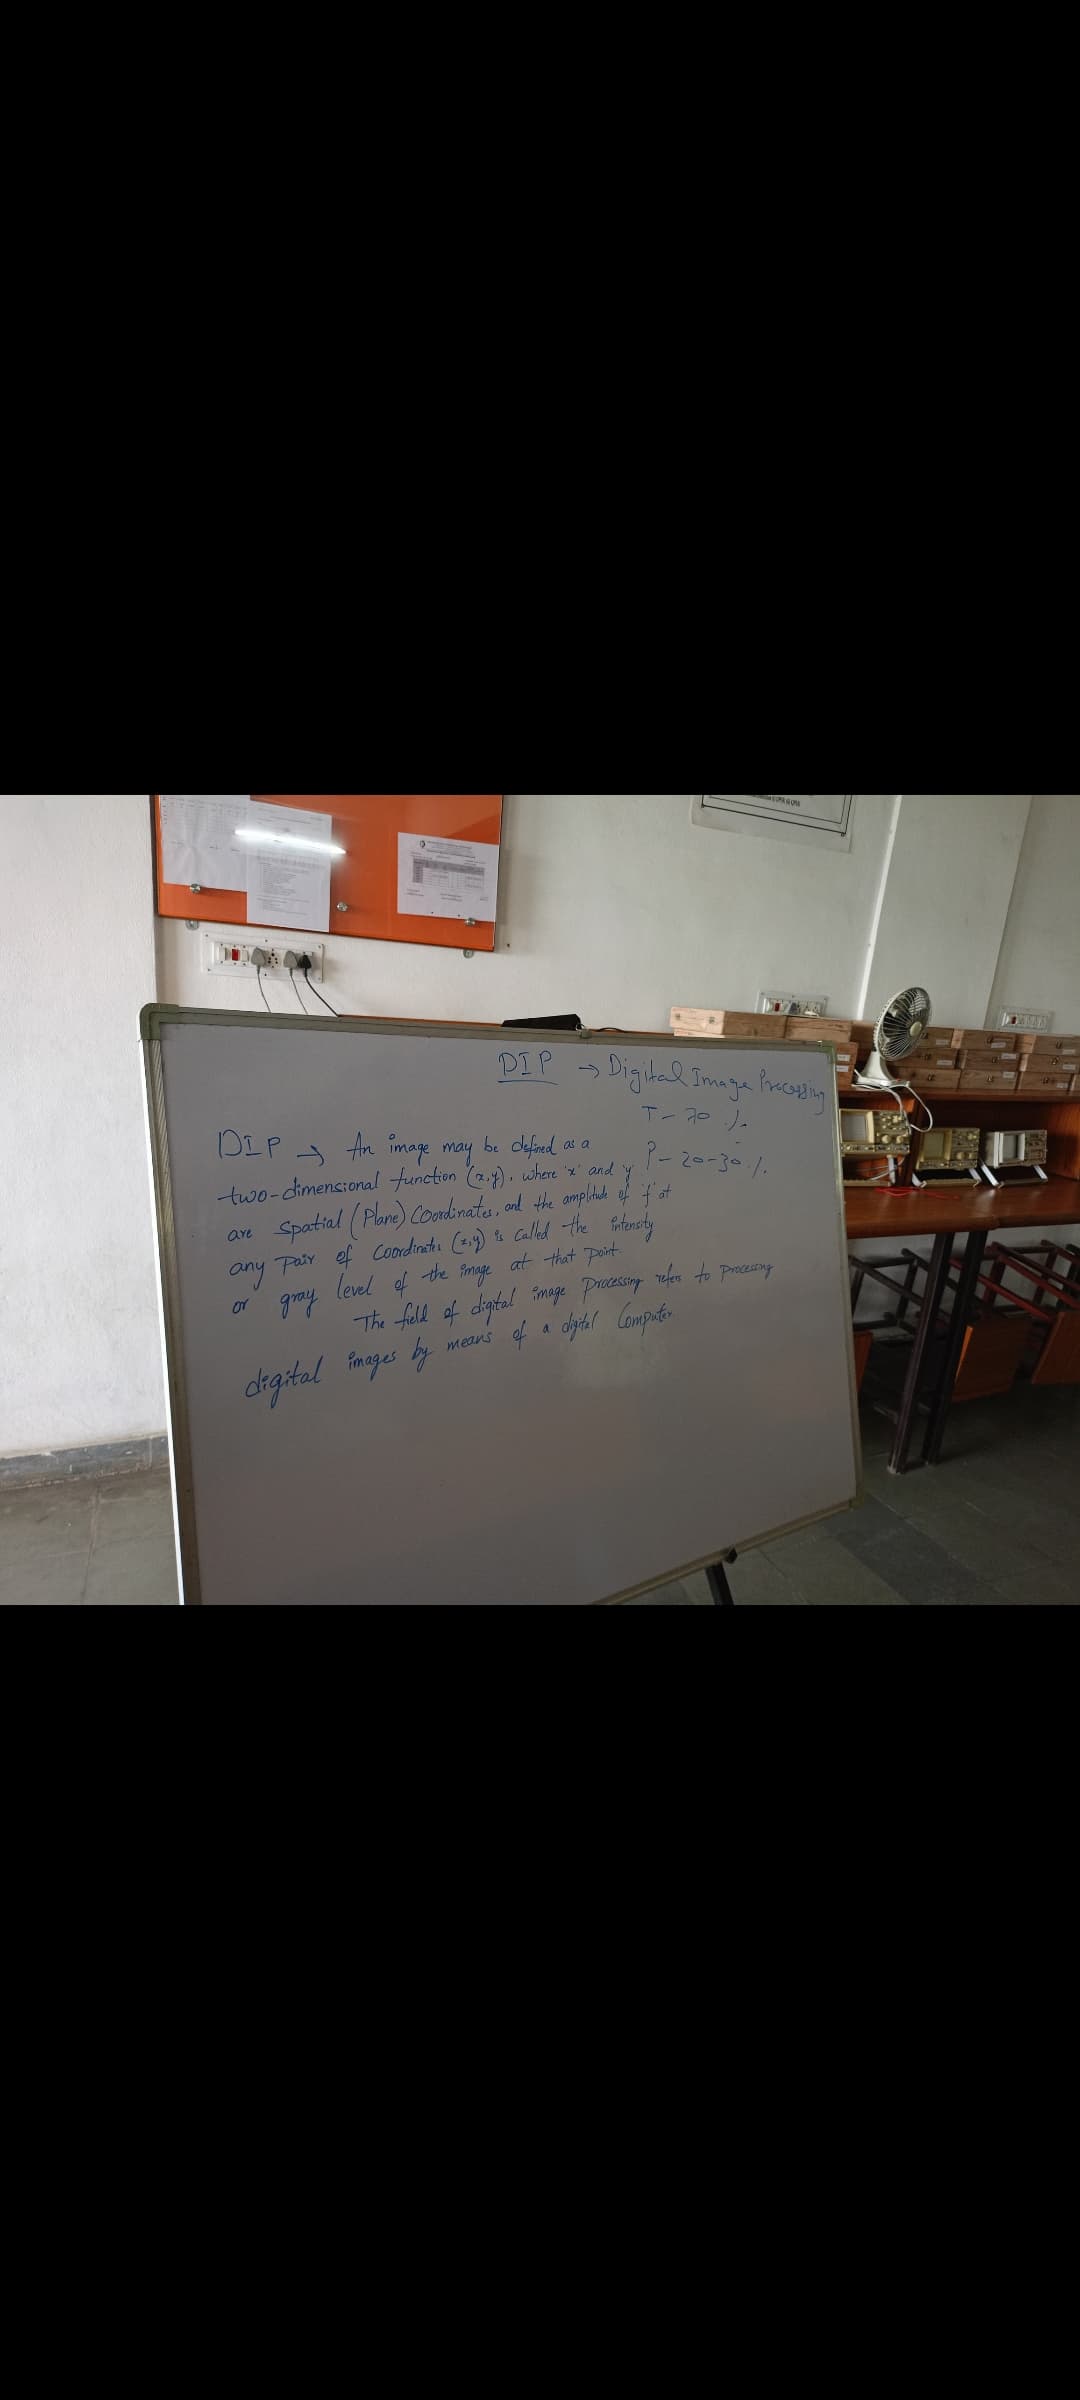 DIP → Digital Image Processing
T - 70 %
P - 20-30 %
DIP → An image may be defined as a
two-dimensional function (x,y), where 'x' and 'y'
are spatial (Plane) Coordinates, and the amplitude of 'f' at
any pair of Coordinates (x,y) is called the intensity
or gray level of the image at that point.
The field of digital image processing refers to processing
digital images by means of a digital Computer